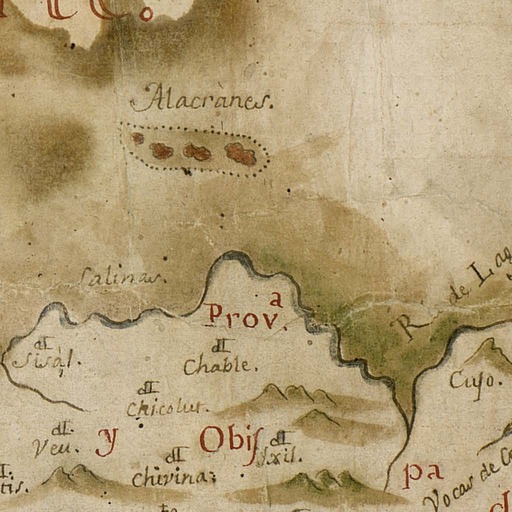 Alacrànes.
Salinas.
Provᵃ.
R. de Lag
Sisàl.
Chable.
Cuyo.
Chicolut.
Veu.
y
Obiſ
Ixil.
Chivina:
pa
tis.
Vocas de Co